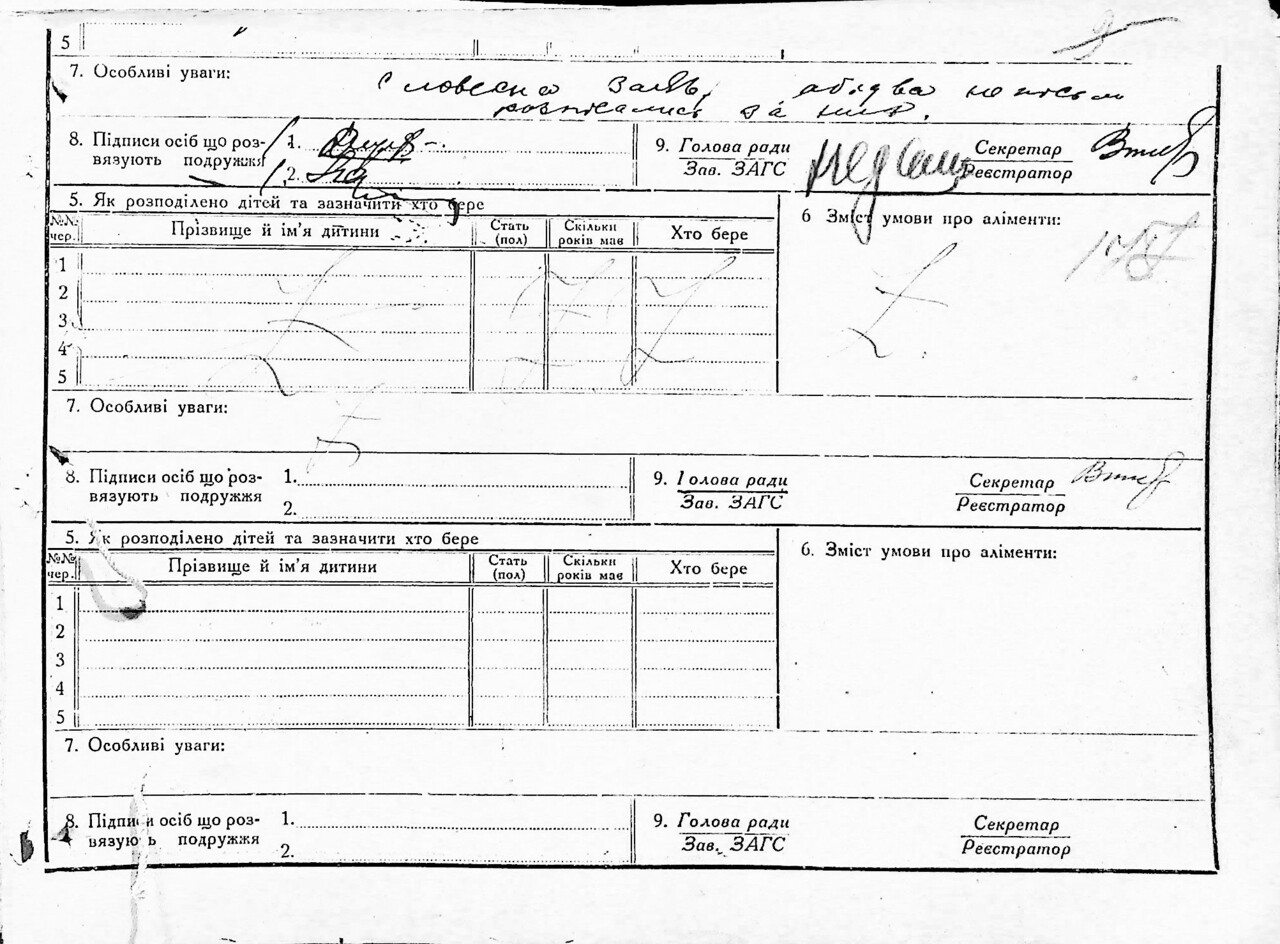 5
7. Особливі уваги: Словесна заяв, обідва неписьм
розписались за них.
8. Підписи осіб що роз- 1.
вязують подружжя 2.
9. Голова ради Секретар
Зав. ЗАГС Реєстратор
5. Як розподілено дітей та зазначити хто бере
№№ чер. Прізвище й ім'я дитини Стать (пол) Скільки років має Хто бере
1
2
3
4
5
6 Зміст умови про аліменти:
7. Особливі уваги:
8. Підписи осіб що роз- 1.
вязують подружжя 2.
9. Голова ради Секретар
Зав. ЗАГС Реєстратор
5. Як розподілено дітей та зазначити хто бере
№№ чер. Прізвище й ім'я дитини Стать (пол) Скільки років має Хто бере
1
2
3
4
5
6. Зміст умови про аліменти:
7. Особливі уваги:
8. Підписи осіб що роз- 1.
вязують подружжя 2.
9. Голова ради Секретар
Зав. ЗАГС Реєстратор